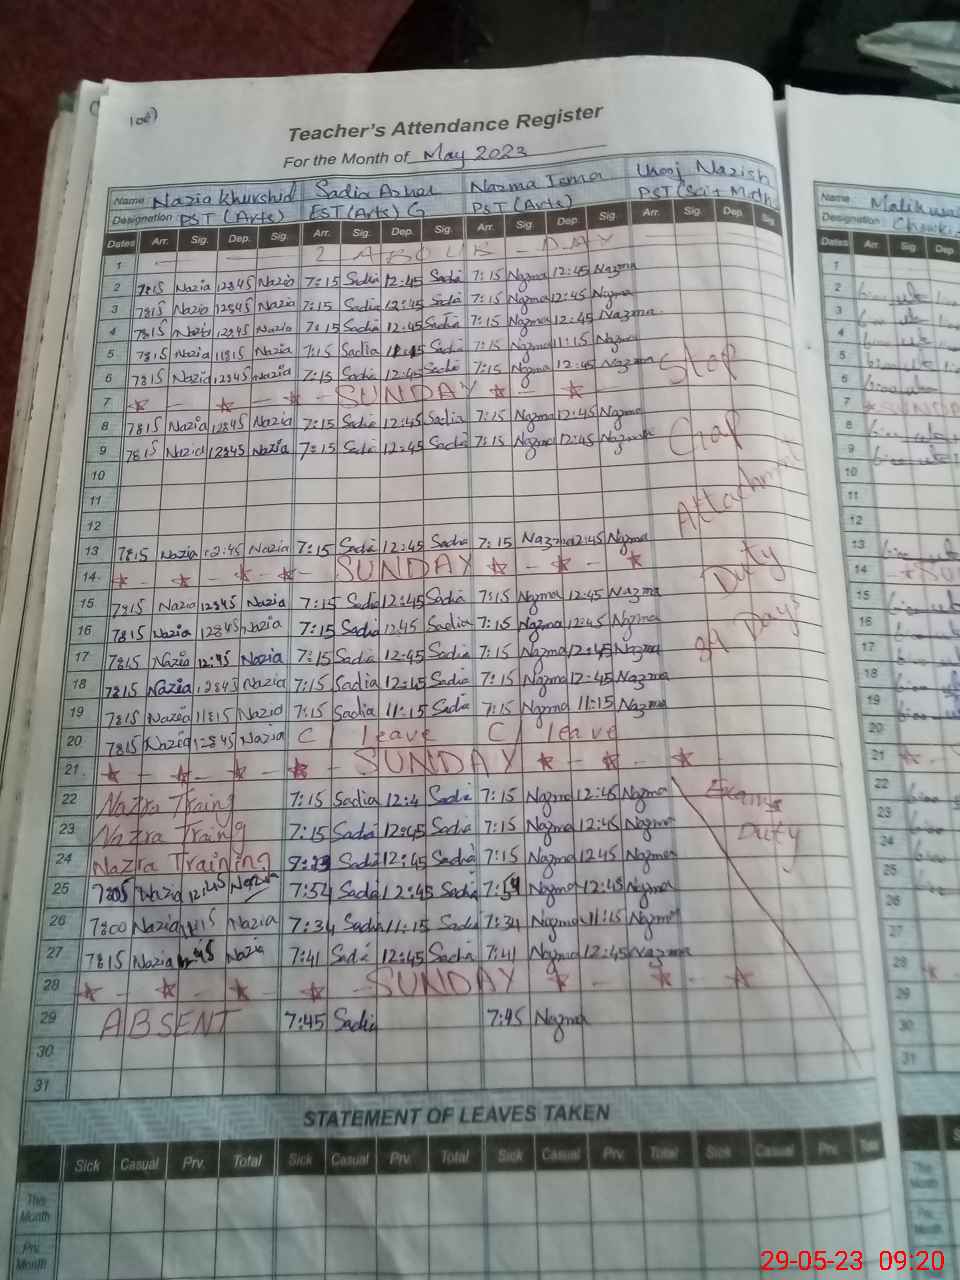 Teacher's Attendance Register
For the Month of May 2023
Name Nazia Khurshid Sadia Azhar Nazma Urooj Nazish
Designation PST (Arts) EST (Arts) G PST (Arts) PST (Sci & Math
Dates Arr. Sig. Dep. Sig. Arr. Sig. Dep. Sig. Arr. Sig. Dep. Sig. Arr. Sig. Dep. Sig.
1 LABOUR - DAY
2 7:15 Nazia 12:45 Nazia 7:15 Sadia 12:45 Sadia 7:15 Nazma 12:45 Nazma
3 7:15 Nazia 12:45 Nazia 7:15 Sadia 12:45 Sadia 7:15 Nazma 12:45 Nazma
4 7:15 Nazia 12:45 Nazia 7:15 Sadia 12:45 Sadia 7:15 Nazma 12:45 Nazma
5 7:15 Nazia 11:15 Nazia 7:15 Sadia 11:15 Sadia 7:15 Nazma 11:15 Nazma
6 7:15 Nazia 12:45 Nazia 7:15 Sadia 12:45 Sadia 7:15 Nazma 12:45 Nazma Stop
7 SUNDAY
8 7:15 Nazia 12:45 Nazia 7:15 Sadia 12:45 Sadia 7:15 Nazma 12:45 Nazma
9 7:15 Nazia 12:45 Nazia 7:15 Sadia 12:45 Sadia 7:15 Nazma 12:45 Nazma Gap
10
11 Attachment
12
13 7:15 Nazia 12:45 Nazia 7:15 Sadia 12:45 Sadia 7:15 Nazma 12:45 Nazma
14 SUNDAY Duty
15 7:15 Nazia 12:45 Nazia 7:15 Sadia 12:45 Sadia 7:15 Nazma 12:45 Nazma
16 7:15 Nazia 12:45 Nazia 7:15 Sadia 12:45 Sadia 7:15 Nazma 12:45 Nazma Days
17 7:15 Nazia 12:45 Nazia 7:15 Sadia 12:45 Sadia 7:15 Nazma 12:45 Nazma
18 7:15 Nazia 12:45 Nazia 7:15 Sadia 12:45 Sadia 7:15 Nazma 12:45 Nazma
19 7:15 Nazia 11:15 Nazia 7:15 Sadia 11:15 Sadia 7:15 Nazma 11:15 Nazma
20 7:15 Nazia 12:45 Nazia C/ leave C/ leave
21 SUNDAY
22 Nazra Traing 7:15 Sadia 12:4 Sadia 7:15 Nazma 12:45 Nazma Exams
23 Nazra Traing 7:15 Sadia 12:45 Sadia 7:15 Nazma 12:45 Nazma Duty
24 Nazra Training Sadia 12:45 Sadia 7:15 Nazma 12:45 Nazma
25 7:05 Nazia 12:45 Nazia 7:54 Sadia 12:45 Sadia 7:54 Nazma 12:45 Nazma
26 7:00 Nazia 11:15 Nazia 7:34 Sadia 11:15 Sadia 7:34 Nazma 11:15 Nazma
27 7:15 Nazia 12:45 Nazia 7:41 Sadia 12:45 Sadia 7:41 Nazma 12:45 Nazma
28 SUNDAY
29 ABSENT 7:45 Sadia 7:45 Nazma
30
31
STATEMENT OF LEAVES TAKEN
Sick Casual Prv. Total Sick Casual Prv. Total Sick Casual Prv. Total Sick Casual Prv. Total
This Month
Prv. Month
Name
Designation
Dates Arr. Sig. Dep
1
2
3
4
5
6
7 SUNDA
8
9
10
11
12
13
14 SU
15
16
17
18
19
20
21
22
23
24
25
26
27
28
29
30
31
This Month
Prv. Month
29-05-23 09:20